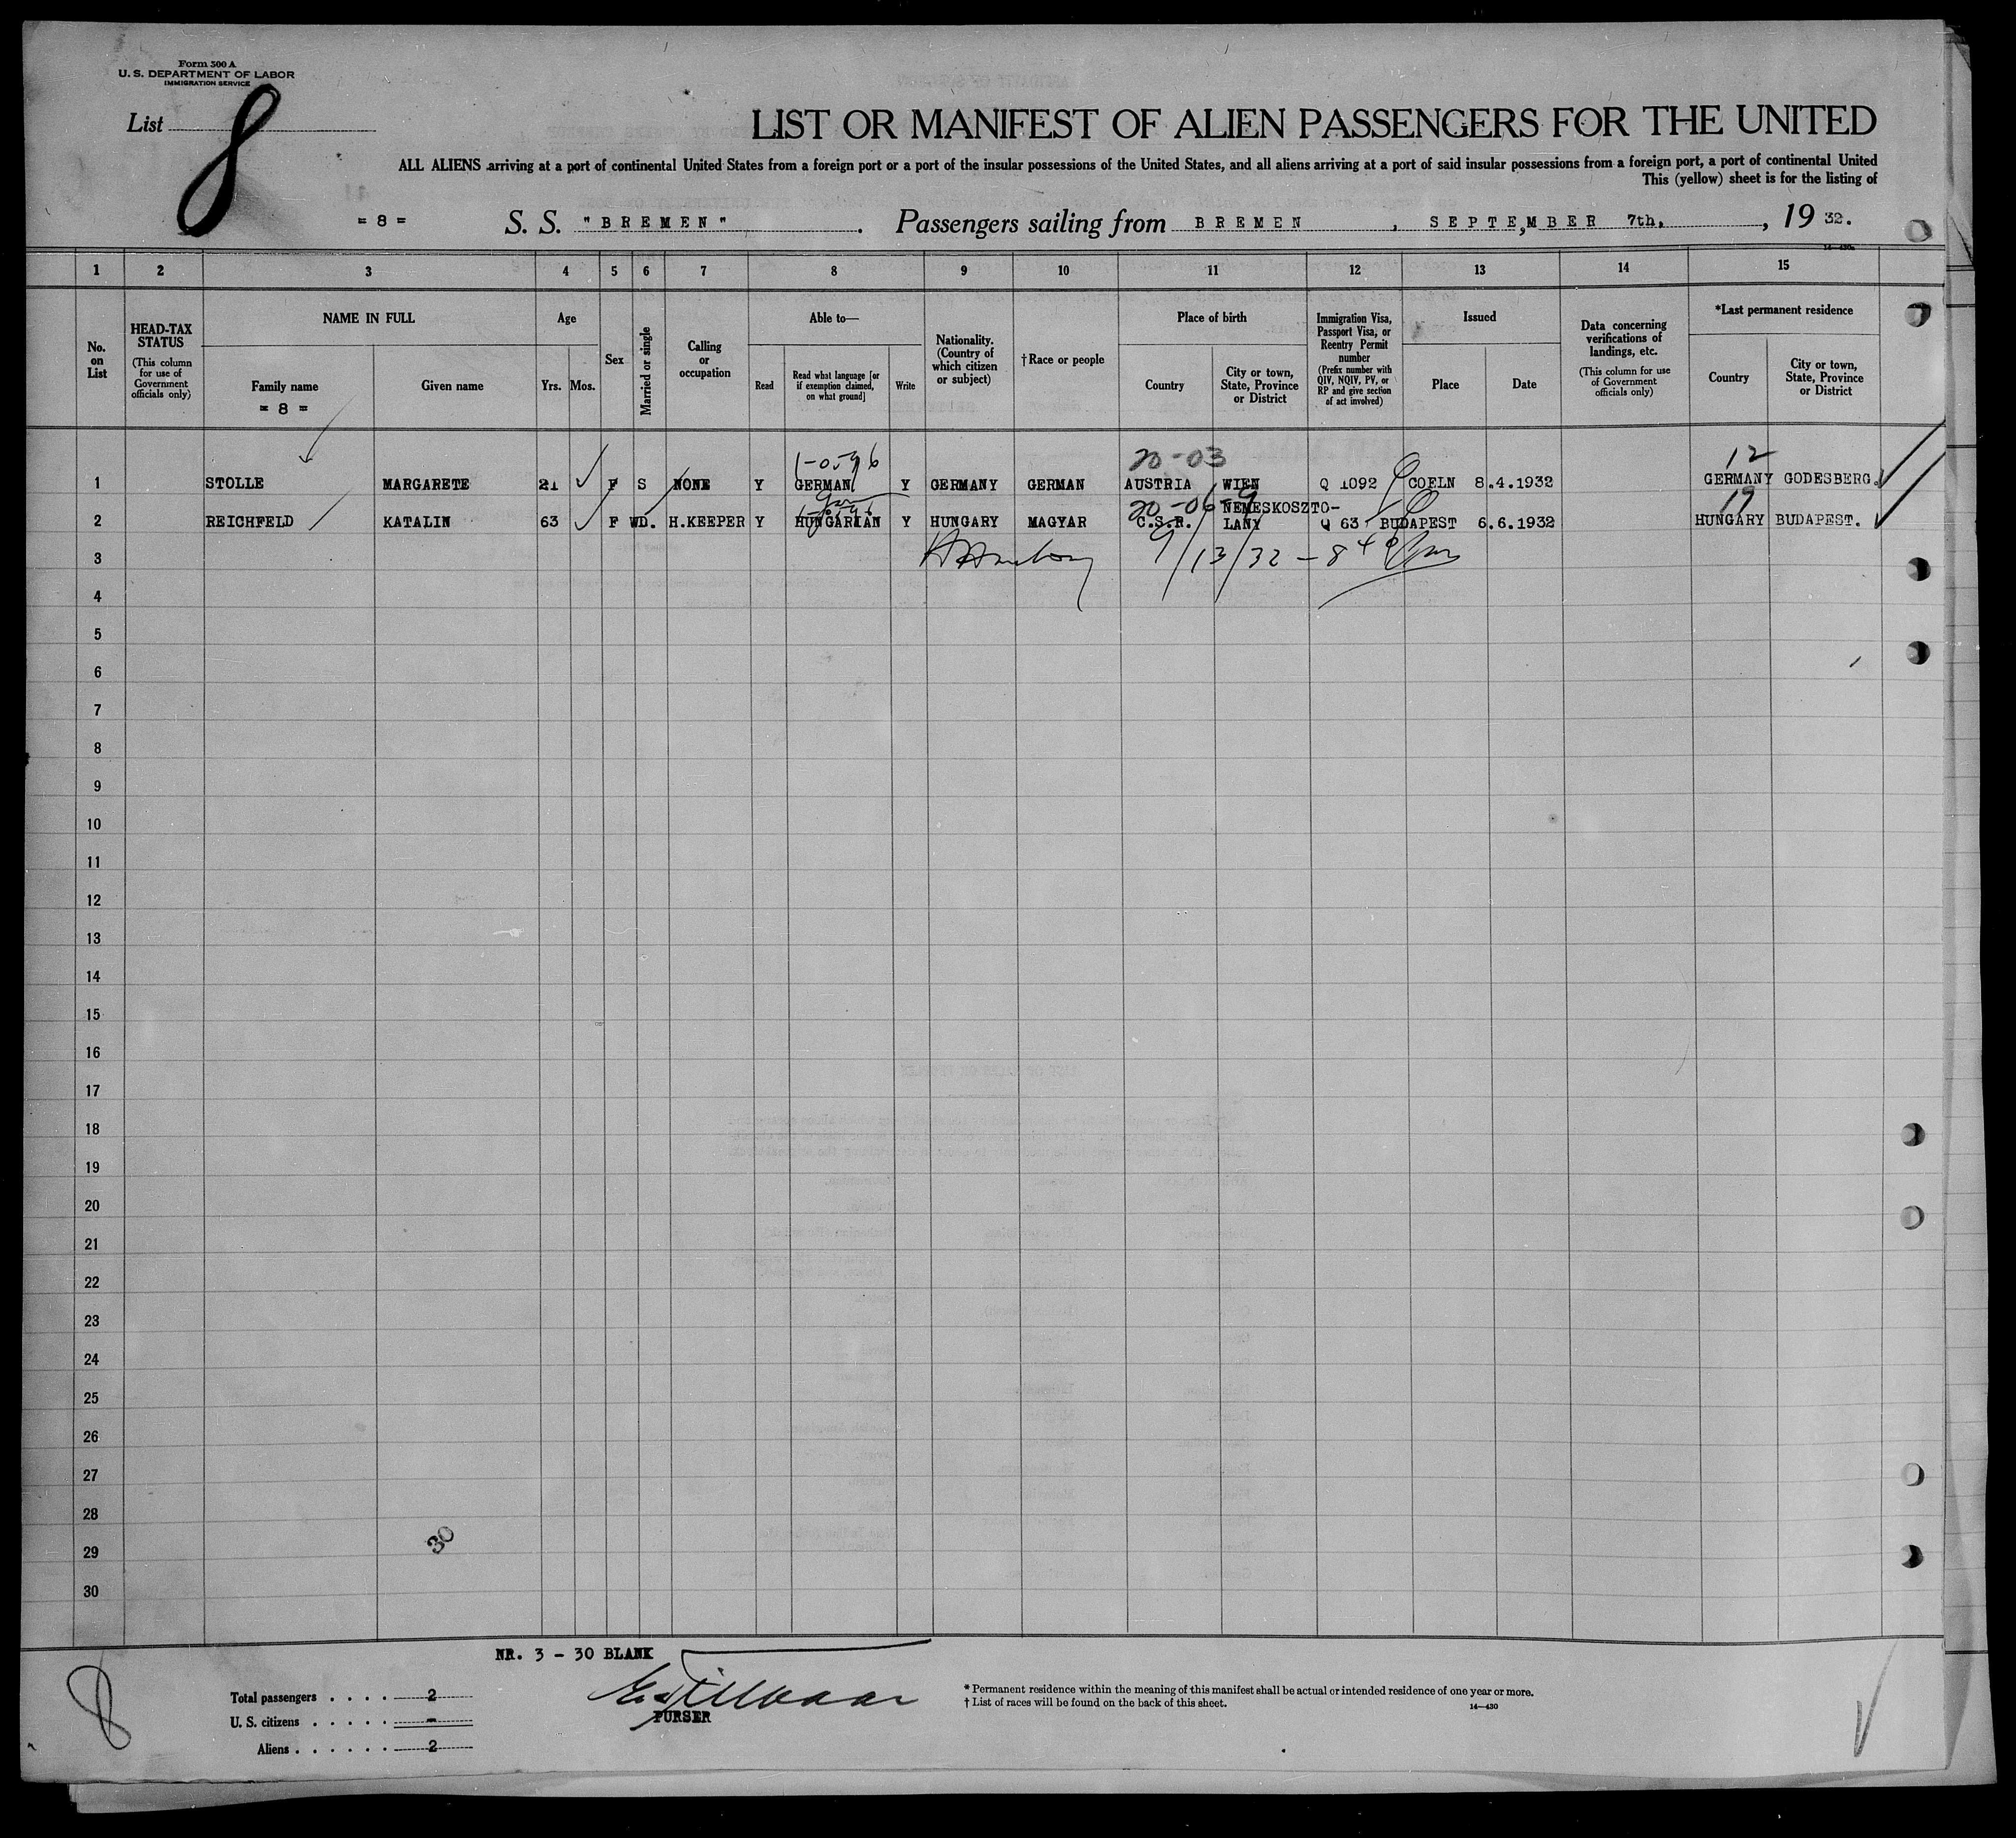 Form 500 A
U. S. DEPARTMENT OF LABOR
IMMIGRATION SERVICE
List 8
LIST OR MANIFEST OF ALIEN PASSENGERS FOR THE UNITED
ALL ALIENS arriving at a port of continental United States from a foreign port or a port of the insular possessions of the United States, and all aliens arriving at a port of said insular possessions from a foreign port, a port of continental United
This (yellow) sheet is for the listing of
= 8 = S. S. "BREMEN". Passengers sailing from BREMEN, SEPTEMBER 7th, , 19 32.
1 2 3 4 5 6 7 8 9 10 11 12 13 14 15
No. on List
HEAD-TAX STATUS
(This column for use of Government officials only)
NAME IN FULL
Family name
= 8 =
Given name
Age
Yrs. Mos.
Sex
Married or single
Calling or occupation
Able to—
Read
Read what language [or if exemption claimed, on what ground]
Write
Nationality. (Country of which citizen or subject)
†Race or people
Place of birth
Country
City or town, State, Province or District
Immigration Visa, Passport Visa, or Reentry Permit number
(Prefix number with QIV, NQIV, PV, or RP and give section of act involved)
Issued
Place
Date
Data concerning verifications of landings, etc.
(This column for use of Government officials only)
*Last permanent residence
Country
City or town, State, Province or District
1-0596 20-03 12
1 STOLLE MARGARETE 21 F S NONE Y GERMAN Y GERMANY GERMAN AUSTRIA WIEN Q 1092 COELN 8.4.1932 GERMANY GODESBERG.
20-06-9 NEMESKOSZTO- 19
2 REICHFELD KATALIN 63 F WD. H.KEEPER Y HUNGARIAN Y HUNGARY MAGYAR C.S.R. LANY Q 63 BUDAPEST 6.6.1932 HUNGARY BUDAPEST.
3 9/13/32 - 840
4
5
6
7
8
9
10
11
12
13
14
15
16
17
18
19
20
21
22
23
24
25
26
27
28
29 30
30
NR. 3 - 30 BLANK
8
PURSER
Total passengers . . . . 2
U. S. citizens . . . . . -
Aliens . . . . . . 2
* Permanent residence within the meaning of this manifest shall be actual or intended residence of one year or more.
† List of races will be found on the back of this sheet.
14—430